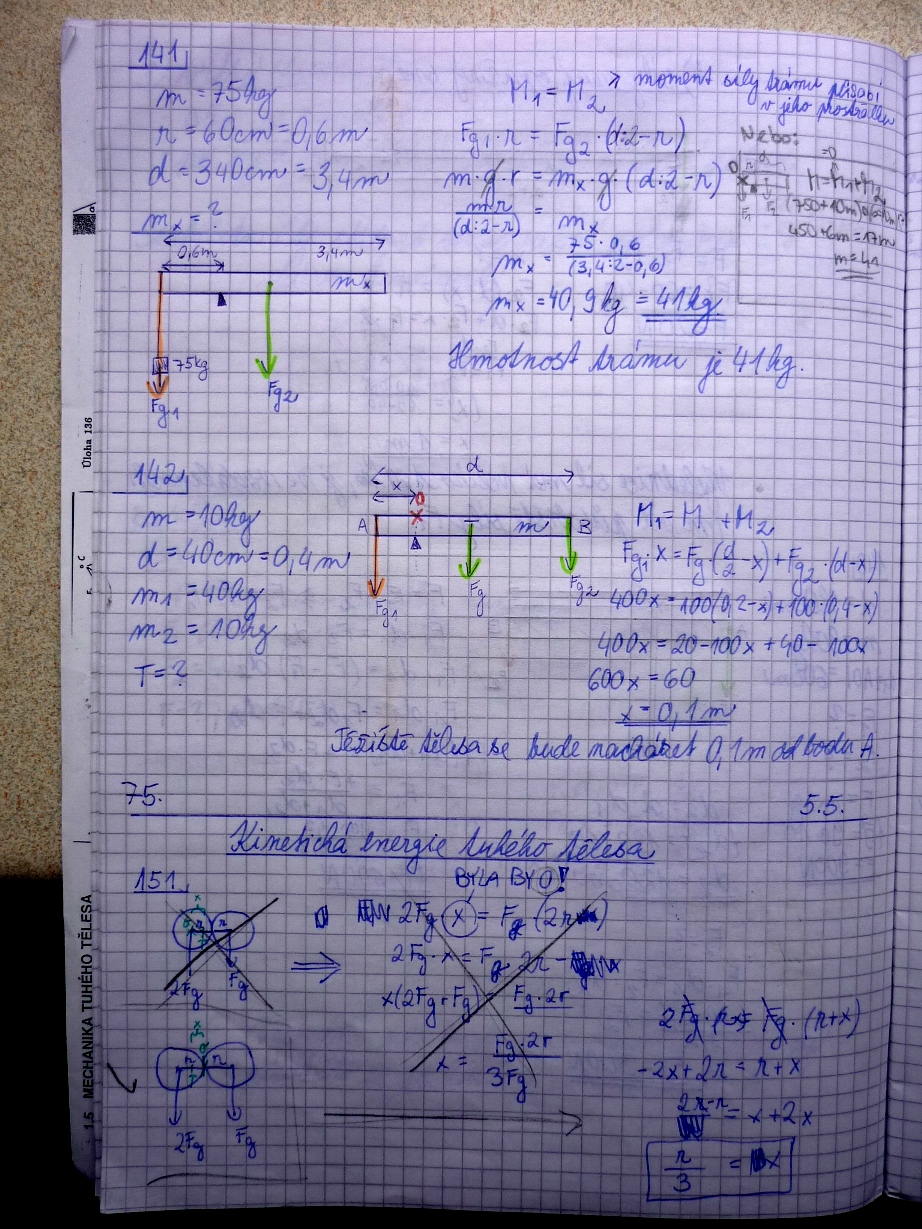 141
m = 75kg
r = 60cm = 0,6m
d = 340cm = 3,4m
m x = ?
0,6m 3,4m
m x
75kg
Fg1 Fg2
M1 = M2 → moment síly trámu působí
v jeho prostředku
Fg1 · r = Fg2 · (d:2-r)
m · g · r = mx · g · (d:2-r)
m·r / (d:2-r) = mx
mx = 75·0,6 / (3,4:2-0,6)
mx = 40,9kg ≐ 41kg
Hmotnost trámu je 41kg.
Nebo:
=0
450+6m = 17m
m = 41
Úloha 136
142
m = 10kg
d = 40cm = 0,4m
m1 = 40kg
m2 = 10kg
T = ?
d
x
O
A T m B
Fg1 Fg Fg2
M1 = M + M2
Fg1·x = Fg·(d/2-x) + Fg2·(d-x)
400x = 100(0,2-x) + 100·(0,4-x)
400x = 20-100x + 40-100x
600x = 60
x = 0,1m
Těžiště tělesa se bude nacházet 0,1m od bodu A.
75. 5.5.
Kinetická energie tuhého tělesa
151
BYLA BY O!
2Fg (x) = Fg (2r
2Fg·x = Fg 2r -
x(2Fg+Fg) = Fg·2r
x = Fg·2r / 3Fg
r r
2Fg Fg
r r
2Fg Fg
2Fg·(r-x) = Fg·(r+x)
-2x+2r = r+x
2r-r = x+2x
r/3 = x
1.5 MECHANIKA TUHÉHO TĚLESA